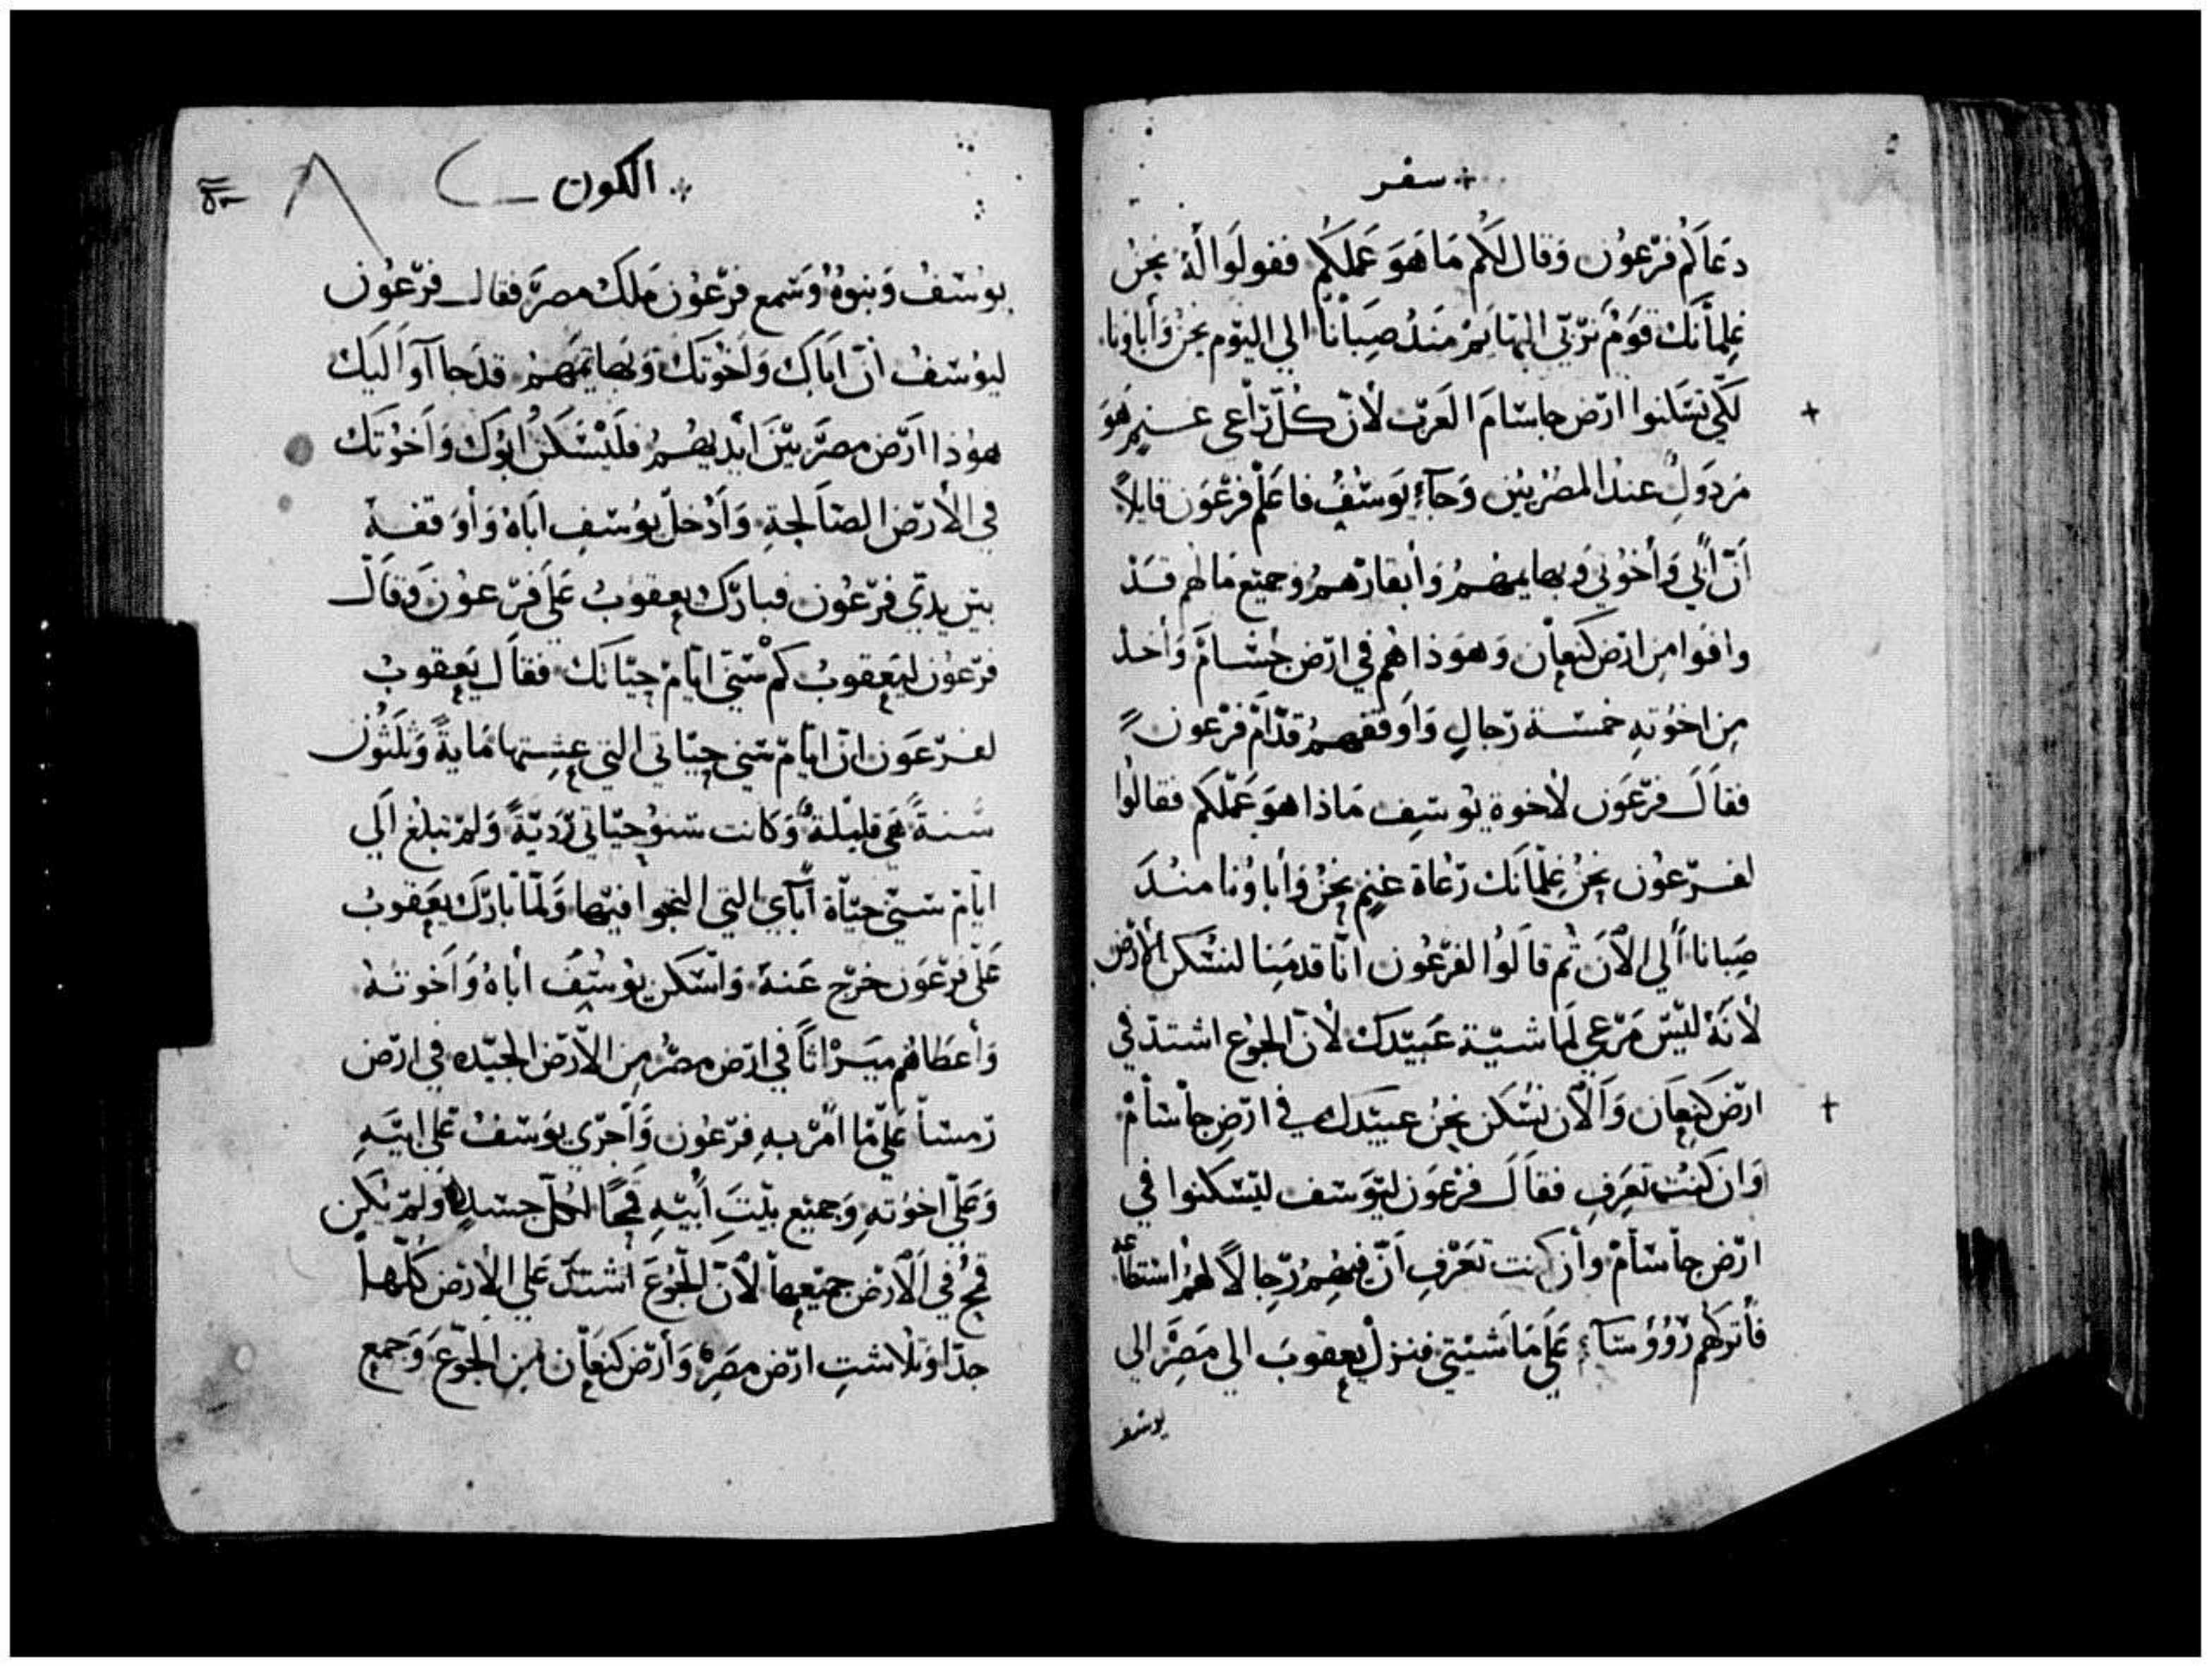 سفر
دعاكم فرعون وقال لكم ما هو عملكم فقولوا له نحن
غلمانك قوم نربي البهايم منذ صبانا الي اليوم نحن وأباونا
لكي تسكنوا ارض جاسام العرب لأن كل راعي غنم هو
مردول عند المصريين وجآء يوسف فاعلم فرعون قايلاً
أن أبي وأخوتي وبهايمهم وأبقارهم وجميع ما لهم قد
وافوا من ارض كنعان وهوذا هم في ارض جسام وأخد
من اخوته خمسة رجال وأوقفهم قدام فرعون
فقال فرعون لأخوة يوسف ماذا هو عملكم فقالوا
لفرعون نحن غلمانك رعاة غنم نحن وأباونا مند
صبانا ألي الآن ثم قالوا لفرعون انا قدمنا لنسكن الأرض
لأنه ليس مرعي لماشية عبيدك لأن الجوع اشتد في
ارض كنعان والآن نسكن نحن عبيدك في ارض جاسام
وان كنت تعرف فقال فرعون ليوسف ليسكنوا في
ارض جاسام وأن كنت تعرف أن فيهم رجالاً لهم استطاعة
فأتركهم رووسآء علي ماشيتي فنزل يعقوب الي مصر الي
يوسف
الكون
يوسف وبنوه وسمع فرعون ملك مصر فقال فرعون
ليوسف أن اباك وأخوتك وبهايمهم قد جاآوا اليك
هوذا ارض مصر بين أيديهم فليسكن ابوك وأخوتك
في الأرض الصالحة وأدخل يوسف اباه وأوقفه
بين يدي فرعون فبارك يعقوب علي فرعون وقال
فرعون ليعقوب كم سني ايام حياتك فقال يعقوب
لفرعون ان ايام سني حياتي التي عشتها ماية وثلثون
سنة هي قليلة وكانت سنو حياتي ردية ولم تبلغ الي
ايام سني حياة أبآي التي النجوا فيها ولما بارك يعقوب
علي فرعون خرج عنه وأسكن يوسف أباه وأخوته
وأعطاهم ميراثاً في ارض مصر من الأرض الجيده في ارض
رمسا علي ما امر به فرعون وأجري يوسف علي ابيه
وعلي اخوته وجميع بيت أبيه قمحاً لكل جسد ولم يكن
قمح في الأرض جميعها لأن الجوع اشتد علي الأرض كلها
جدا وتلاشت ارض مصر وأرض كنعان من الجوع وجمع